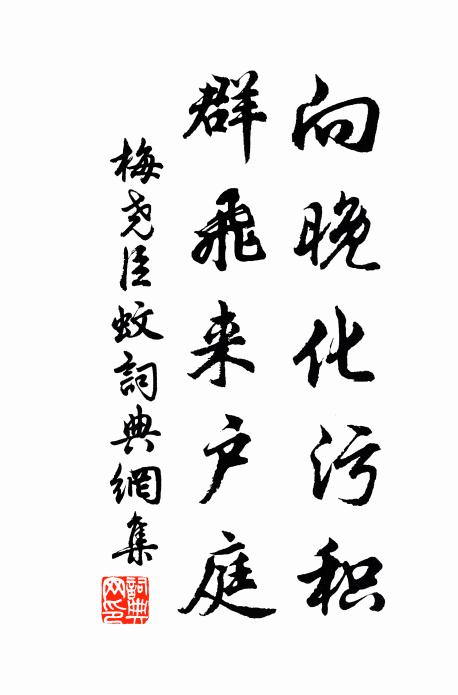 向晚化污积
群飛来户庭
梅尧臣蚊詞典網集
詞典网印